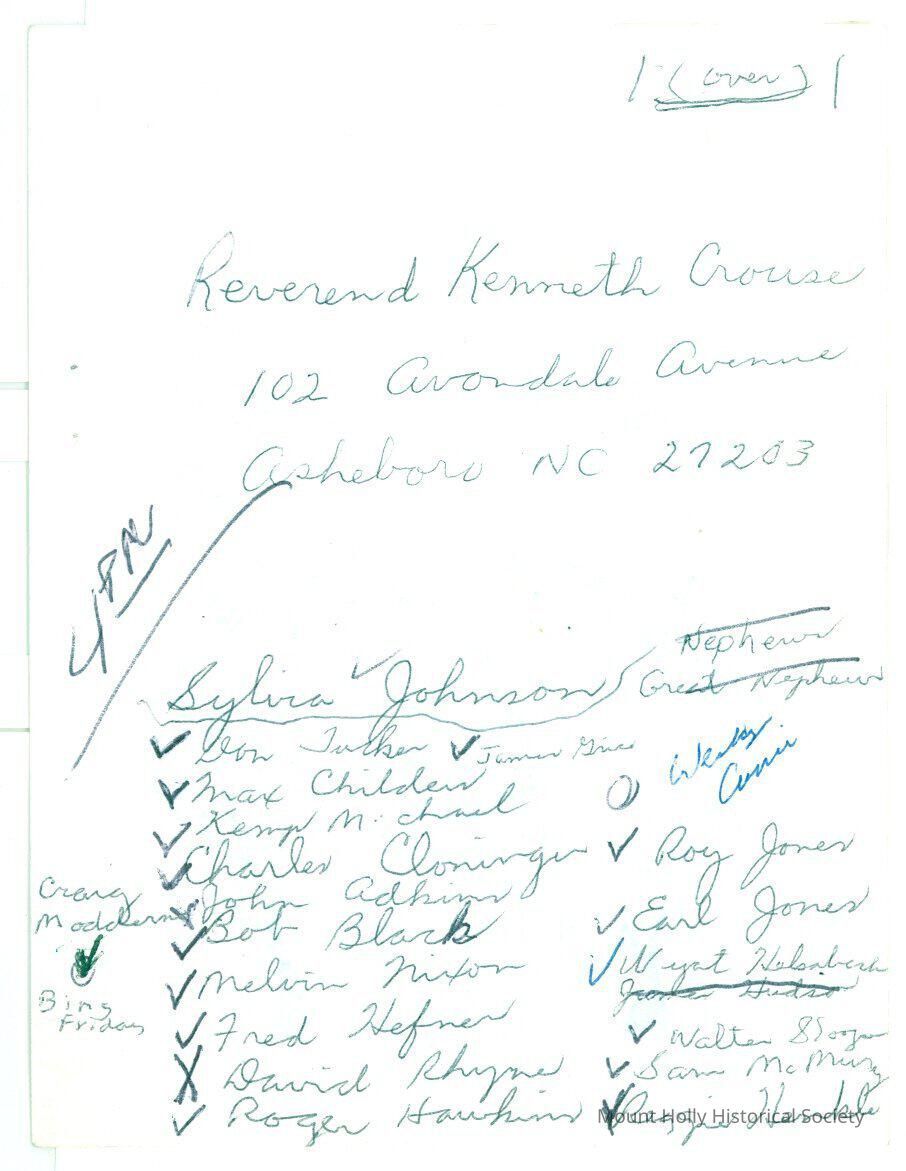 (over)
Reverend Kenneth Crouse
102 Avondale Avenue
Asheboro NC 27203
4 PM
Nephews
Great Nephews
Sylvia Johnson
Don Tucker
James
Max Childers
Wesley
Kemp Michael
Charles Cloninger
Roy Jones
Craig
John Adkins
Bob Black
Earl Jones
Melvin Nixon
Wyat Helsabeck
James Hudso
Bing
Friday
Fred Hefner
Walter
David Rhyne
Sam McMurry
Roger Hawkins
Mount Holly Historical Society